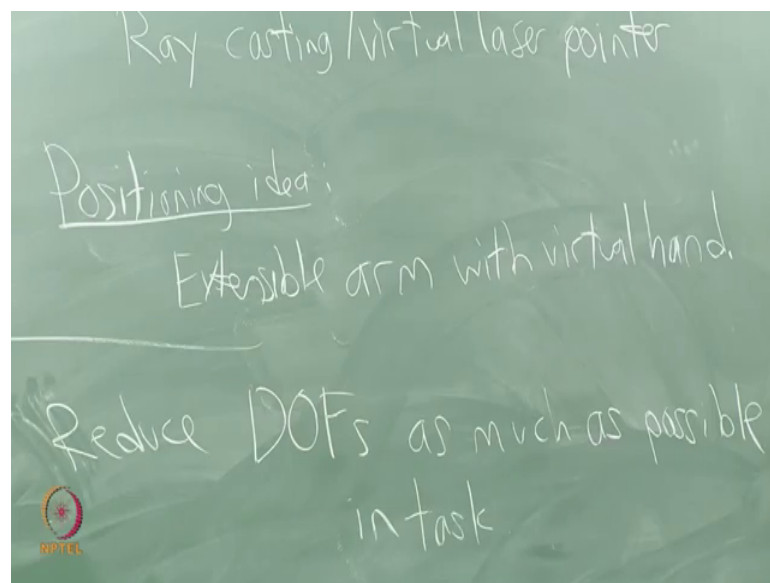 Ray casting/virtual laser pointer
Positioning idea:
Extensible arm with virtual hand.
Reduce DOFs as much as possible
in task
NPTEL